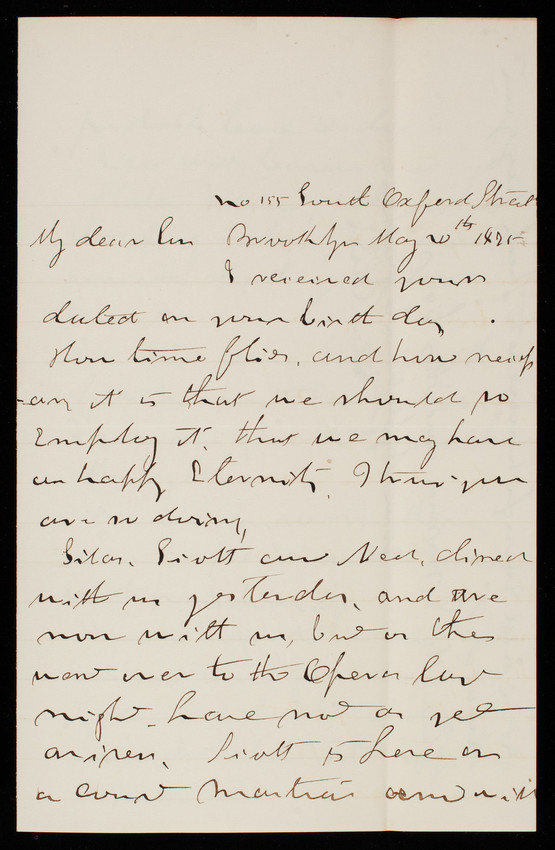 No 155 South Oxford Street
My dear Son Brooklyn May 20th 1875
I received yours
dated on your birth day .
How time flies, and how necess
-ary it is that we should so
Employ it, that we may have
an happy Eternity, I trust you
are so doing,
Silas. Scott and Ned, dined
with us yesterday, and are
now with us, but as they
went over to the Opera last
night, have not as yet
arisen, Scott is here on
a court martial and will